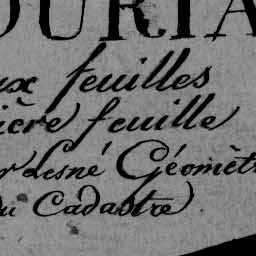 OURIA
ux feuilles
ière feuille
r Lesné Géomèt
du Cadastre